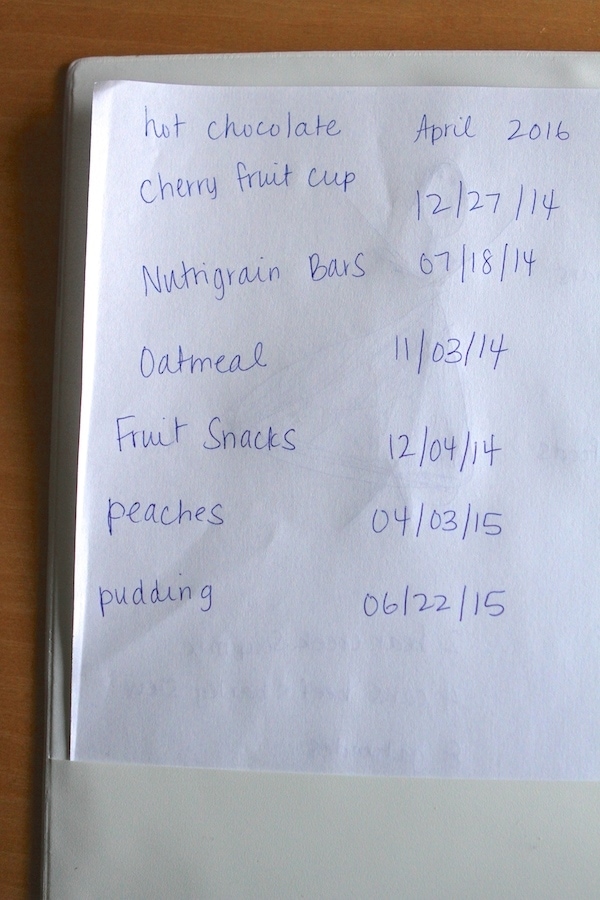 hot chocolate April 2016
Cherry fruit cup 12/27/14
Nutrigrain Bars 07/18/14
Oatmeal 11/03/14
Fruit Snacks 12/04/14
peaches 04/03/15
pudding 06/22/15